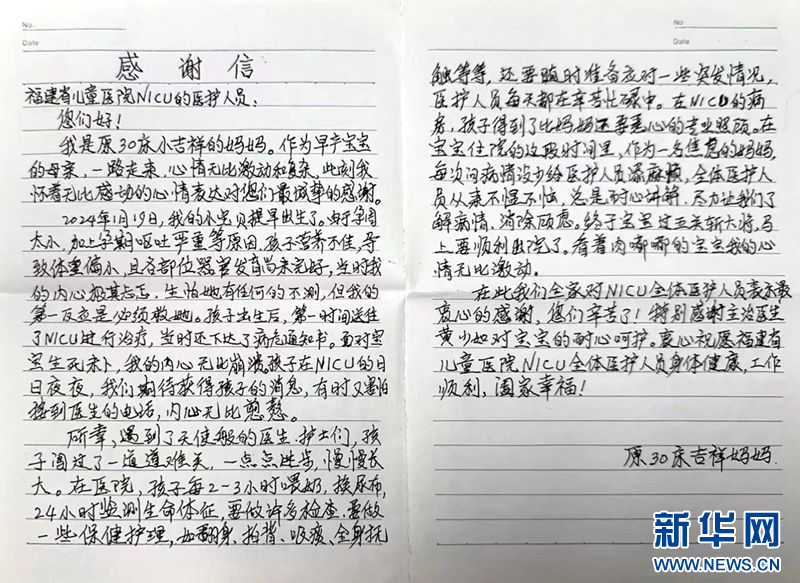 No.
Date
感谢信
福建省儿童医院NICU的医护人员:
您们好!
我是原30床小吉祥的妈妈。作为早产宝宝
的母亲,一路走来,心情无比激动和复杂,此刻我
怀着无比感动的心情表达对您们最诚挚的感谢。
2024年1月19日,我的小宝贝提早出生了。由于孕周
太小,加上孕期呕吐严重等原因,孩子营养不佳,导
致体重偏小,且各部位器官发育尚未完好,当时我
的内心极其忐忑,生怕她有任何的不测,但我的
第一反应是必须救她。孩子出生后,第一时间送往
了NICU进行治疗,当时还下达了病危通知书。面对宝
宝生死未卜,我的内心无比崩溃,孩子在NICU的日
日夜夜,我们期待获得孩子的消息,有时又害怕
接到医生的电话,内心无比煎熬。
所幸,遇到了天使般的医生、护士们,孩
子闯过了一道道难关,一点点进步,慢慢长
大。在医院,孩子每2-3小时喂奶,换尿布,
24小时监测生命体征,要做许多检查,要做
一些保健护理,如翻身、拍背、吸痰、全身抚
No.
Date
触等等,还要随时准备应对一些突发情况,
医护人员每天都在辛苦忙碌中。在NICU的病
房,孩子得到了比妈妈还要悉心的专业照顾。在
宝宝住院的这段时间里,作为一名焦虑的妈妈,
每次问病情没少给医护人员添麻烦,全体医护人
员从来不愠不恼,总是耐心讲解,尽力让我们了
解病情、消除顾虑。终于宝宝过五关斩六将,马
上要顺利出院了。看着肉嘟嘟的宝宝我的心
情无比激动。
在此我们全家对NICU全体医护人员表示最
衷心的感谢,您们辛苦了!特别感谢主治医生
黄少如对宝宝的耐心呵护。衷心祝愿福建省
儿童医院NICU全体医护人员身体健康,工作
顺利,阖家幸福!
原30床吉祥妈妈
新华网
WWW.NEWS.CN